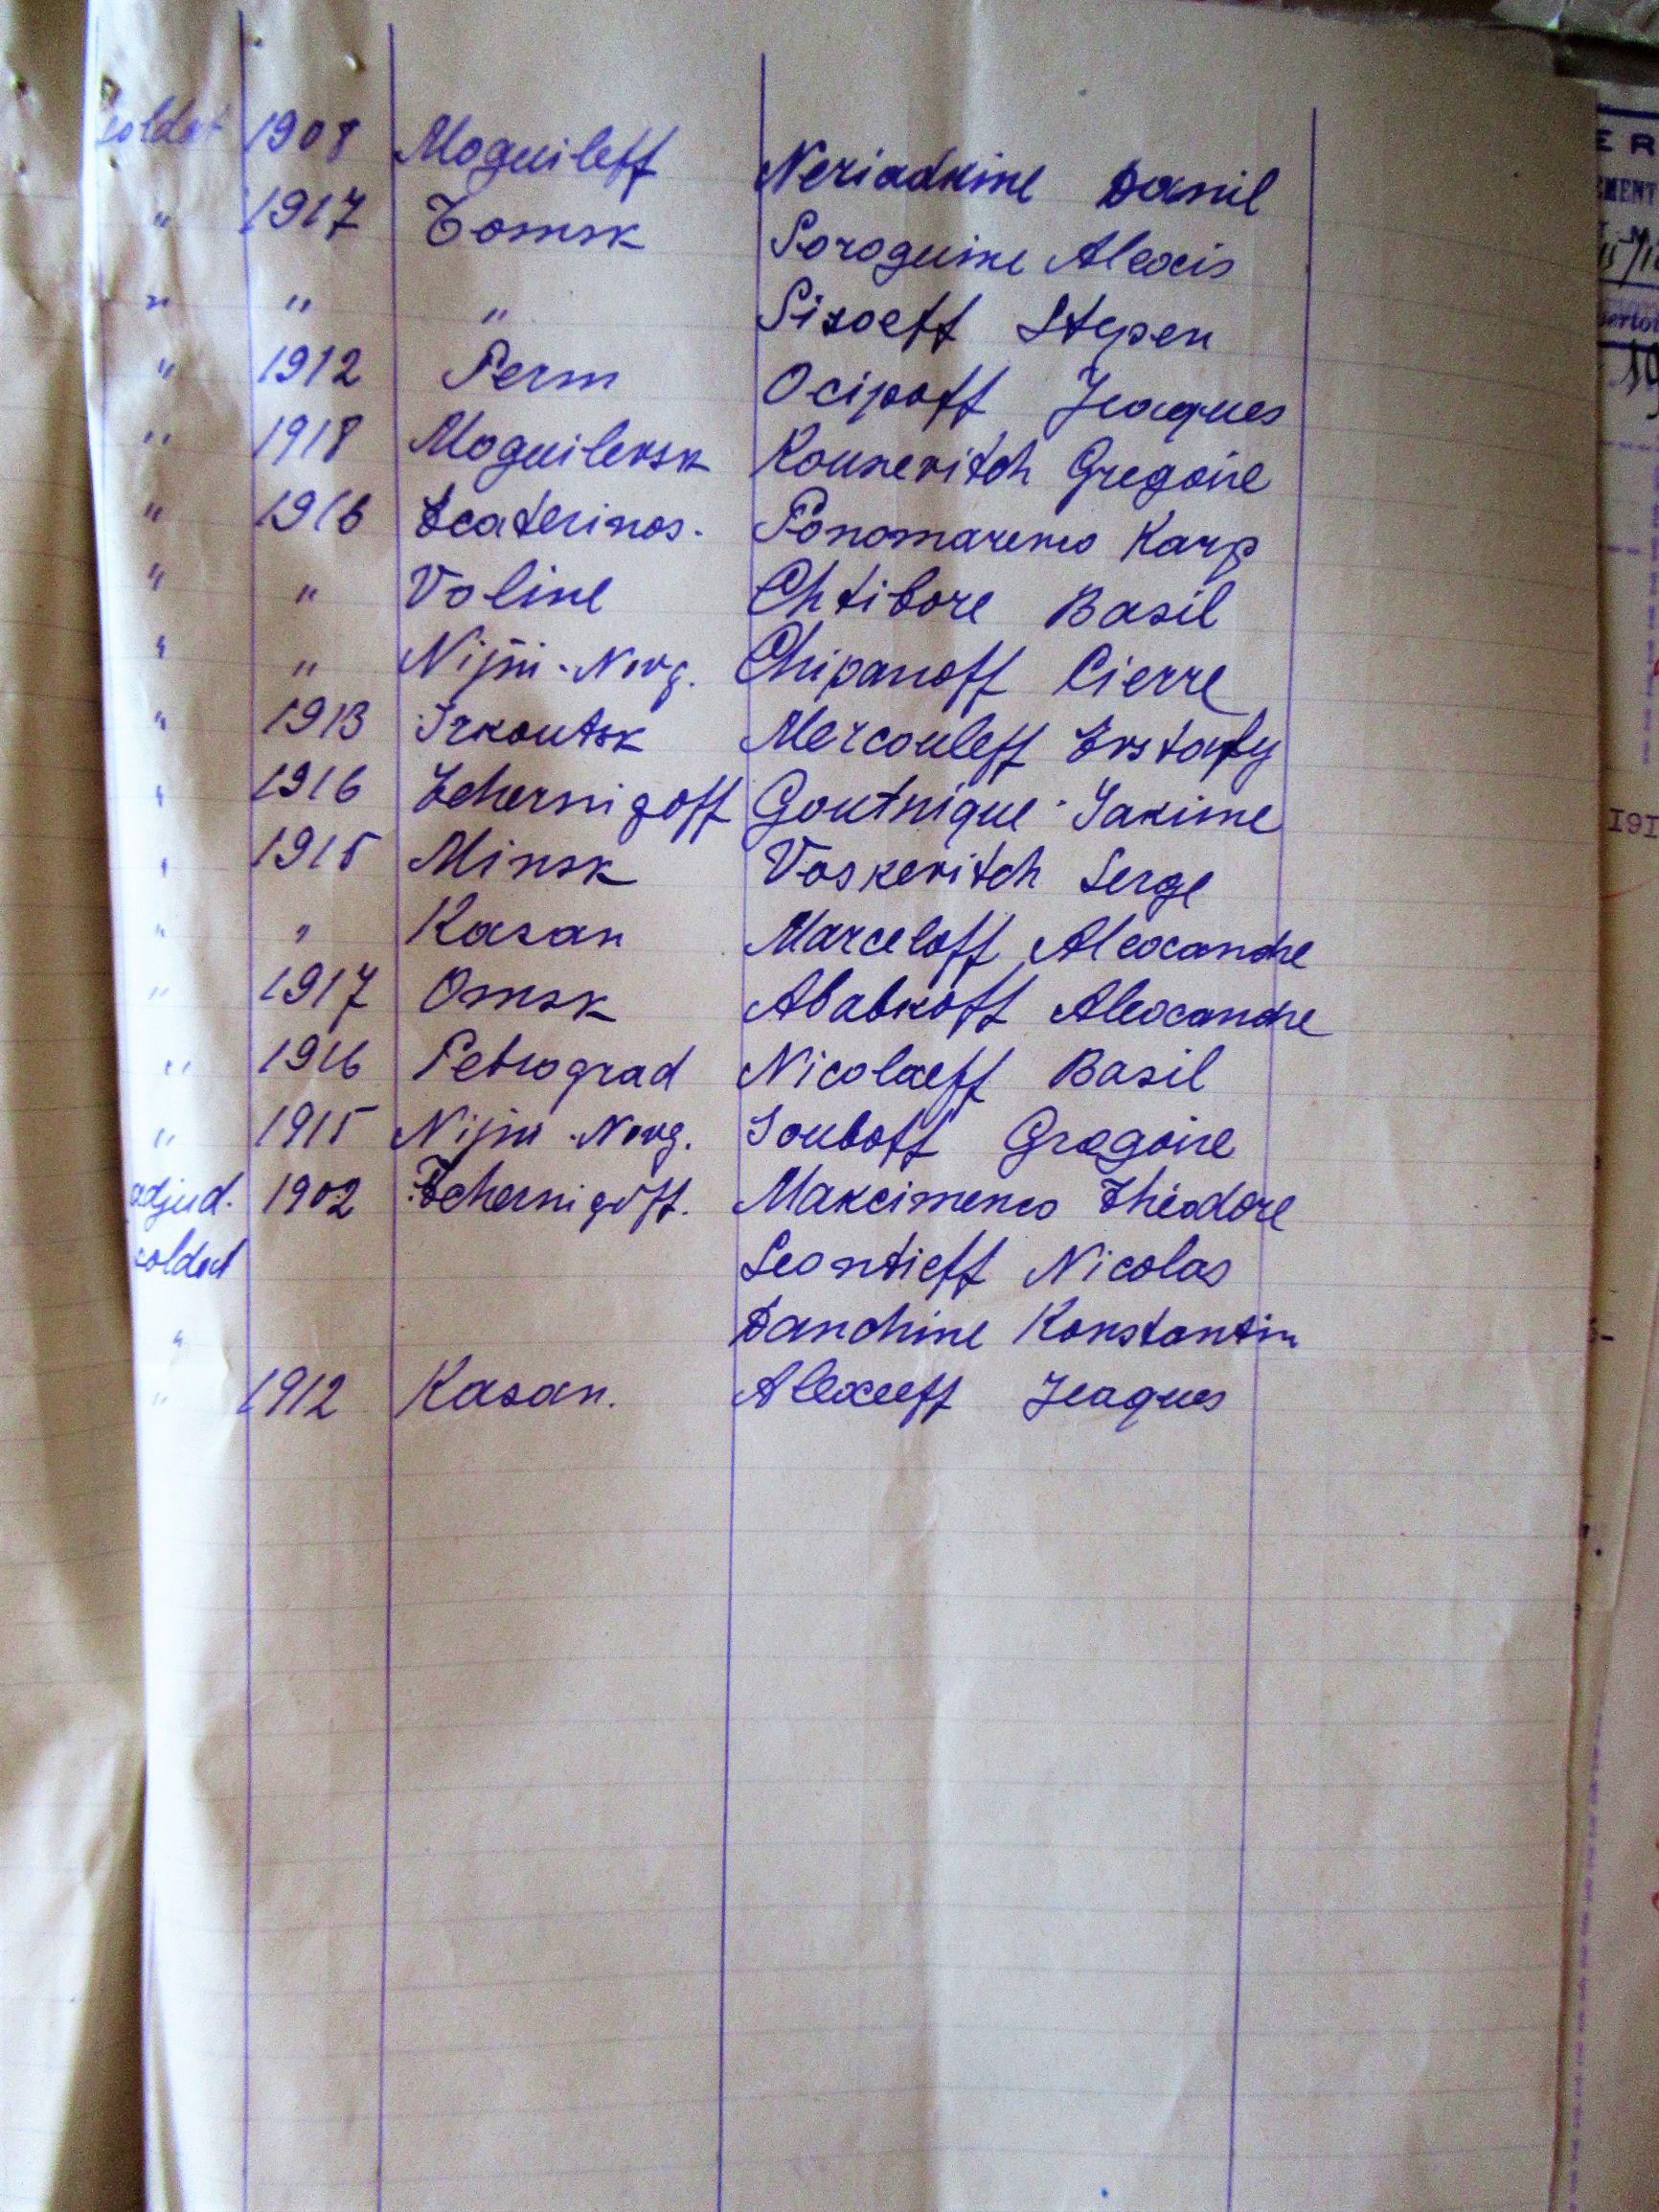 soldat 1908 Moguileff Neriadkine Danil
" 1917 Tomsk Poroguine Alexis
" " " Sizoeff Stepen
" 1912 Perm Ocipoff Jeaques
" 1918 Moguilevsk Kounevitch Gregoire
" 1916 Ecaterinos. Ponomarenco Karp
" " Voline Chtibore Basil
" " Nijni-Novg. Chipanoff Pierre
" 1913 Irkoutsk Mercouleff Evstafy
" 1916 Tchernigoff Goutnique Iakime
" 1915 Minsk Voskevitch Serge
" " Kasan Marceloff Alexandre
" 1917 Omsk Ababkoff Alexandre
" 1916 Petrograd Nicolaeff Basil
" 1915 Nijni-Novg. Jouboff Gregoire
adjud. 1902 Tchernigoff. Makcimenco Théodore
soldat Leontieff Nicolas
" Danchine Konstantin
" 1912 Kasan. Alexeeff Jeaques
ER
EMENT
191